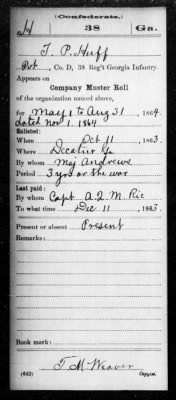 (Confederate.)
H 38 Ga.
T. P. Huff
Pvt, Co. D, 38 Reg't Georgia Infantry.
Appears on
Company Muster Roll
of the organization named above,
for May 1 to Aug 31, 1864.
dated Nov 1, 1864
Enlisted:
When Oct 11, 1863.
Where Decatur Ga
By whom Maj Andrews
Period 3 yrs or the war
Last paid:
By whom Capt. A. Q. M. Ric
To what time Dec 11, 1863.
Present or absent Present
Remarks:
Book mark:
T. M. Weaver
(642) Copyist.